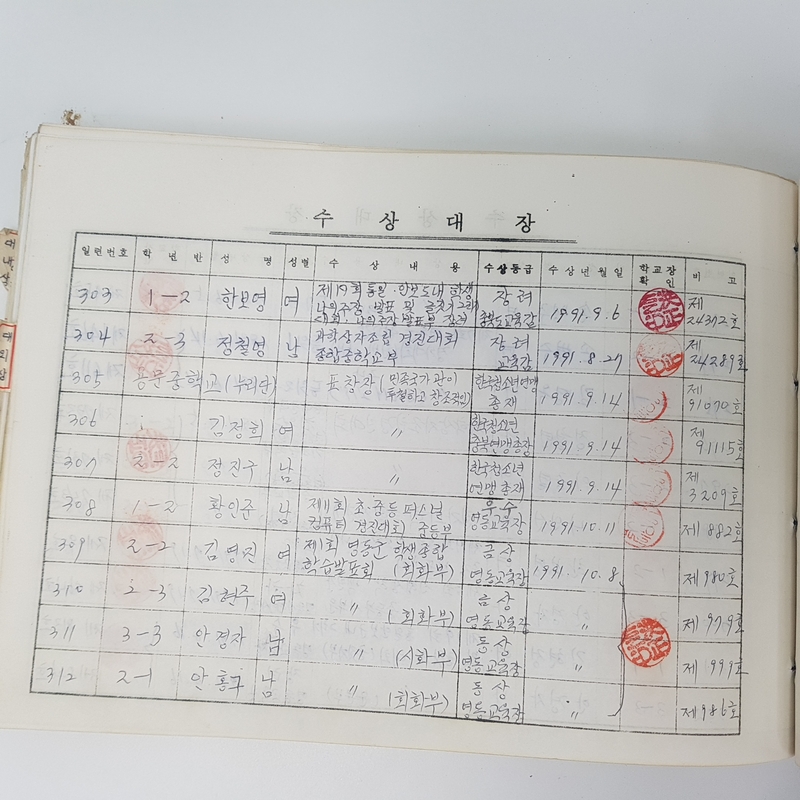 수 상 대 장
일련번호 학년반 성명 성별 수상내용 수상등급 수상년월일 학교장확인 비고
303 1-2 한보영 여 제19회 통일·안보도내 학생 장려 1991. 9. 6 제
나의주장 발표 및 충북도교육감 24372호
나의주장 발표부
304 2-3 정철영 남 과학상자조립 경진대회 장려 1991. 8. 27 제
종합중학교부 교육감 24289호
305 용문중학교(누리단) 표창장 (민족국가관이 한국청소년연맹 1991. 9. 14 제
투철하고 창조적인) 총재 91070호
306 김정희 여 〃 한국청소년 1991. 9. 14 제
충북연맹총장 91115호
307 2-2 정진구 남 〃 한국청소년 1991. 9. 14 제
연맹총재 3209호
308 1-2 황인준 남 제11회 초·중등 퍼스널 우수 1991. 10. 11 제882호
컴퓨터 경진대회 중등부 영동교육장
309 2-2 김영진 여 제1회 영동군 학생종합 금상 1991. 10. 8 제980호
학습발표회 (회화부) 영동교육장
310 2-3 김현주 여 〃 (회화부) 금상 〃 제979호
영동교육장
311 3-3 안경자 남 〃 (서화부) 동상 〃 제999호
영동교육장
312 2-1 안홍구 남 〃 (회화부) 동상 〃 제986호
영동교육장